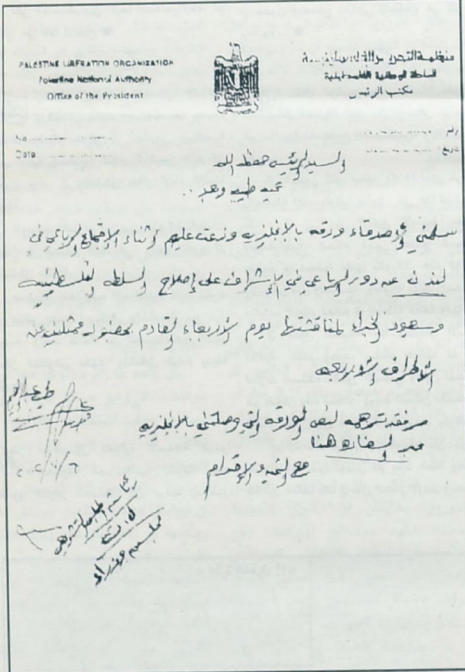 PALESTINE LIBERATION ORGANIZATION
Palestine National Authority
Office of the President
منظمة التحرير الفلسطينية
السلطة الوطنية الفلسطينية
مكتب الرئيس
No.
Date
رقم
تاريخ
السيد الرئيس حفظه الله
تحية طيبة وبعد
سلمني الأصدقاء ورقه بالإنجليزيه وزعت عليهم أثناء الإجتماع الرباعي في
لندن عن دور الرباعي في الإشراف على إصلاح السلطه الفلسطينيه
الخبراء لمناقشتها يوم الأربعاء القادم بحضور ممثلين عن
الأطراف الأربعه
مرفقه ترجمه لنص الورقه التي وصلتني بالإنجليزيه
السفاره هنا
مع التحيه والإحترام